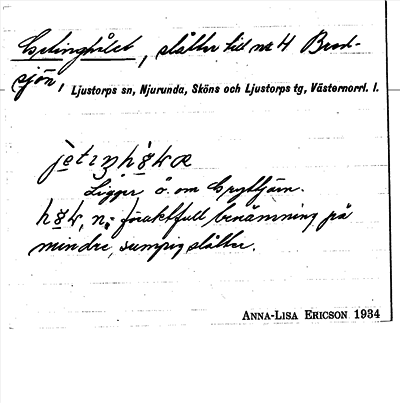 Getinghålet, slåtter till nr 4 Brod-
sjön, Ljustorps sn, Njurunda, Sköns och Ljustorps tg, Västernorrl. l.
Ligger ö. om Gryttjärn.
n; föraktfull benämning på
mindre, sumpig slåtter.
ANNA-LISA ERICSON 1934